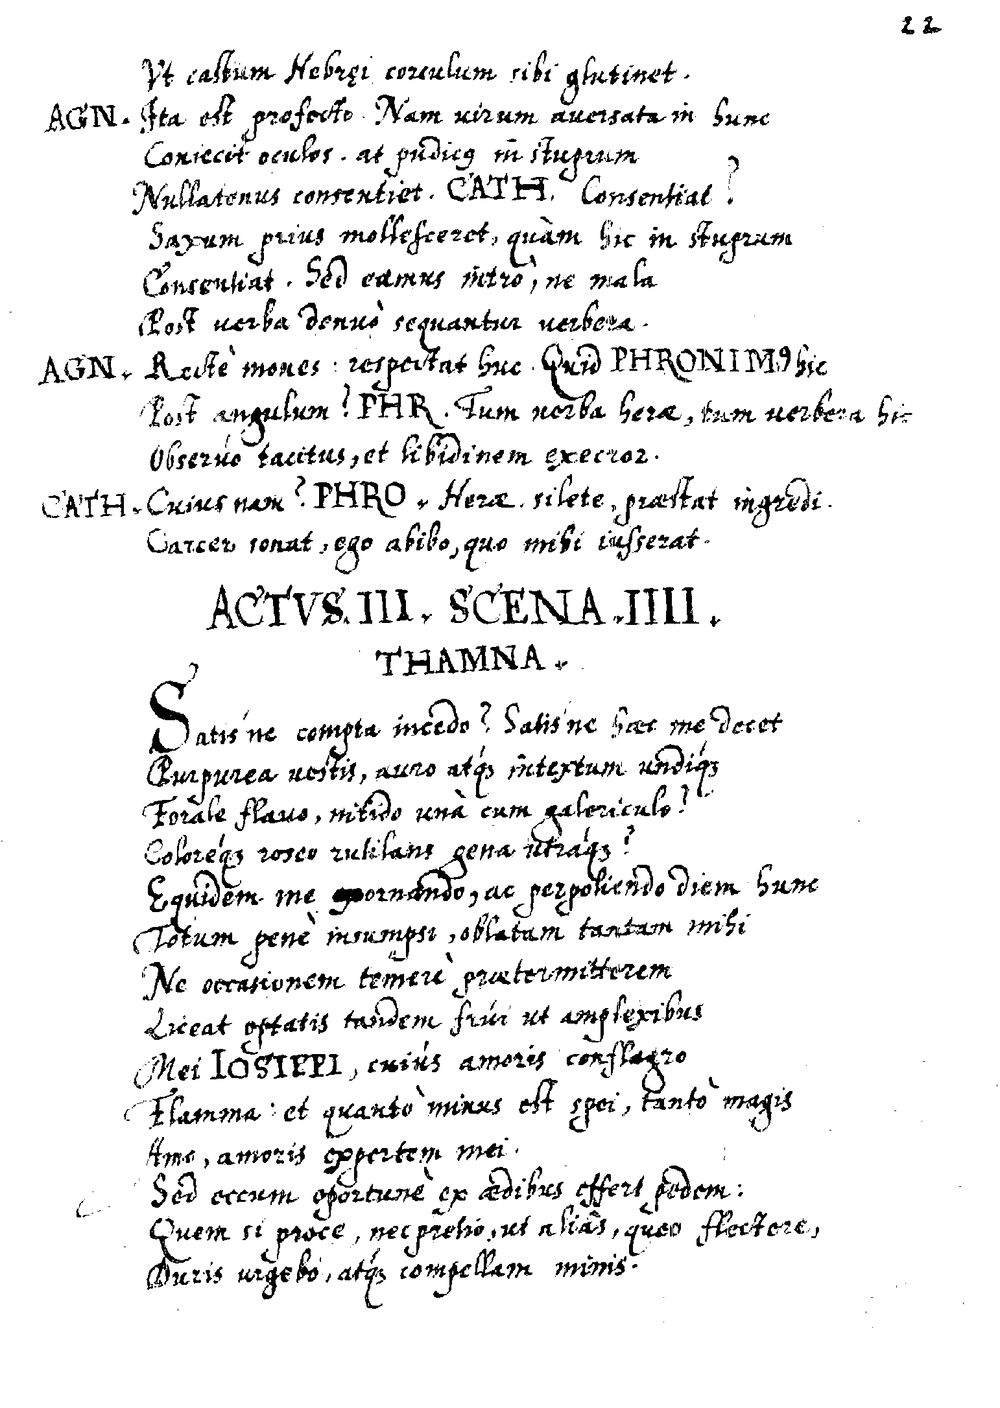 22
Vt castum Hebręi corculum sibi glutinet.
AGN. Ita est profecto. Nam uirum auersata in hunc
Coniecit oculos. at pudicꝰ in stuprum
Nullatenus consentiet. CATH. Consentiat?
Saxum prius mollesceret, quàm hic in stuprum
Consentiat. Sed eamus intrò, ne mala
Post uerba denuò sequantur uerbera.
AGN. Rectè mones: respectat huc. Quid PHRONIMꝰ hic
Post angulum? PHR. Tum uerba heræ, tum uerbera hic
Obseruo tacitus, et libidinem execror.
CATH. Cuius nam? PHRO. Heræ. silete, præstat ingredi.
Carcer sonat, ego abibo, quo mihi iusserat.
ACTVS. III. SCENA. IIII.
THAMNA.
Satis'ne compta incedo? Satis'ne hæc me decet
Purpurea uestis, auro atq́ꝫ intextum undiq́ꝫ
Forale flauo, nitido unà cum galericulo?
Coloreq́ꝫ roseo rutilans gena utraq́ꝫ?
Equidem me exornando, ac perpoliendo diem hunc
Totum penè insumpsi, oblatam tantam mihi
Ne occasionem temerè prætermitterem
Liceat optatis tandem frui ut amplexibus
Mei IOSIPPI, cuius amoris conflagro
Flamma: et quantò minus est spei, tantò magis
Amo, amoris expertem mei.
Sed eccum oportunè ex ædibus effert pedem:
Quem si prece, nec pretio, ut aliàs, queo flectere,
Duris urgebo, atq́ꝫ compellam minis.